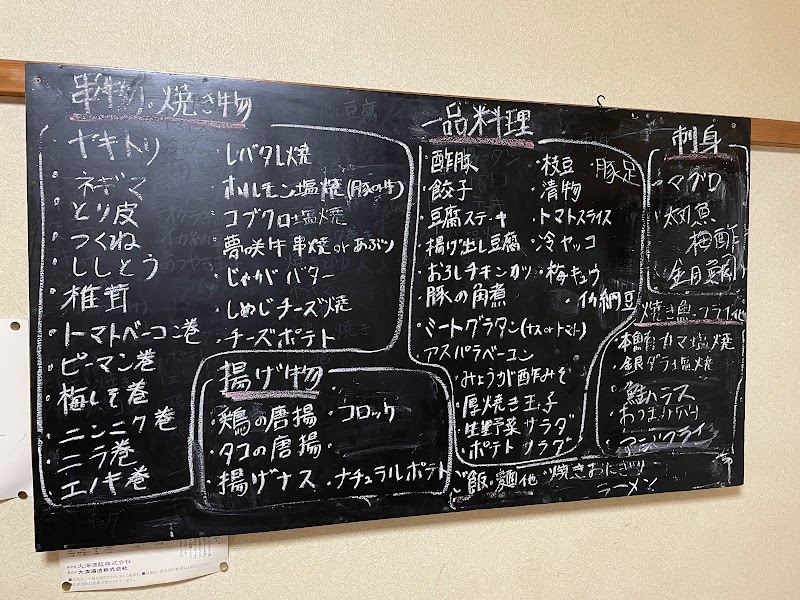 串物・焼き物
ヤキトリ
ネギマ
とり皮
つくね
ししとう
椎茸
トマトベーコン巻
ピーマン巻
梅しそ巻
ニンニク巻
ニラ巻
エノキ巻
・レバタレ焼
・ホルモン塩焼(豚or牛)
・コブクロ塩焼
・夢咲牛串焼orあぶり
・じゃがバター
・しめじチーズ焼
・チーズポテト
揚げ物
・鶏の唐揚
・タコの唐揚
・揚げナス
・コロッケ
・ナチュラルポテト
一品料理
・酢豚
・餃子
・豆腐ステーキ
・揚げ出し豆腐
・おろしチキンカツ
・豚の角煮
・ミートグラタン(ナスorトマト)
・アスパラベーコン
・みょうが酢みそ
・厚焼き玉子
・生野菜サラダ
・ポテトサラダ
・枝豆
・漬物
・トマトスライス
・冷ヤッコ
・梅キュウ
・イカ納豆
・豚足
刺身
マグロ
太刀魚
梅酢
金目鯛
焼き魚・フライ他
・本鮪カマ塩焼
・銀ダラ塩焼
鮭ハラス
アジフライ
ご飯・麺他
・焼きおにぎり
ラーメン
大海酒販株式会社
大海酒造株式会社